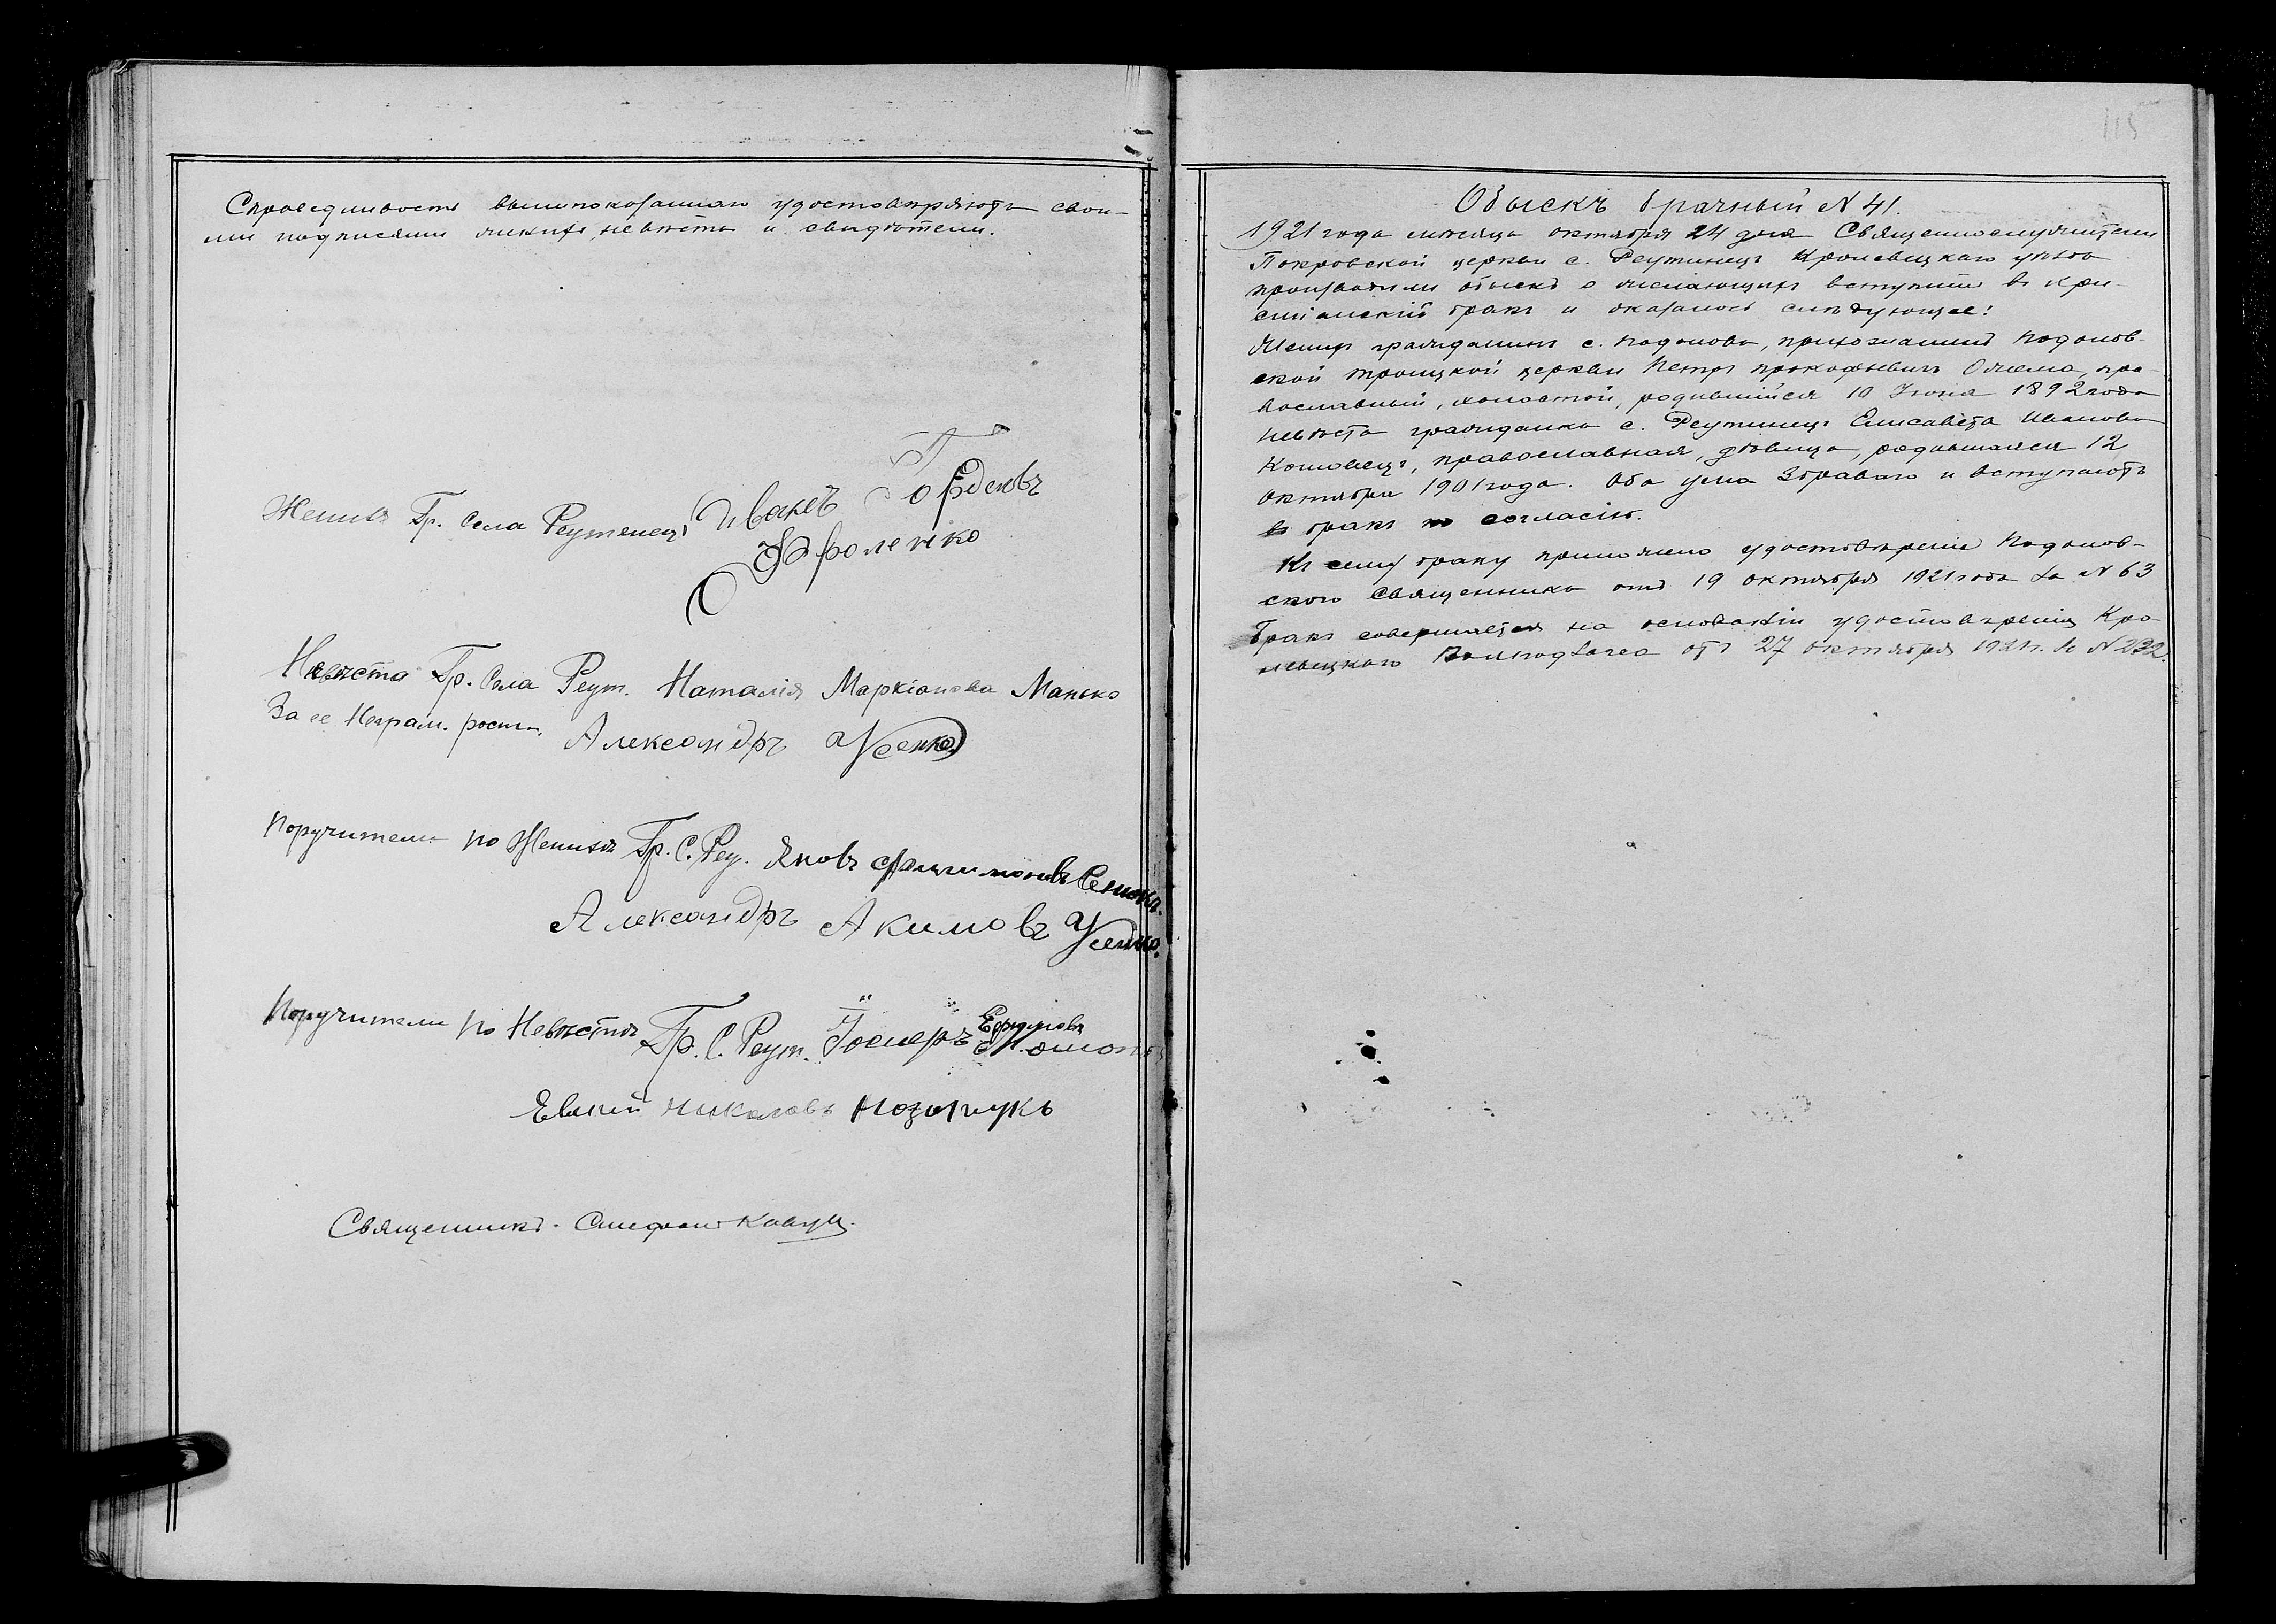 Справедливость вышепоказаннаго удостовѣряютъ свои-
ми подписями женихъ, невѣста и свидѣтели.
Женихъ Гр. села Реутенецъ Иванъ Гордеевъ
Фроленко
Невѣста Гр. села Реут. Наталія Маркіанова Манько
За ее Неграм. росп.
Александръ Усенко
Поручители по Женихѣ Гр. С. Реу. Яковъ
Александръ Акимовъ Усенко.
Поручители по Невѣстѣ Гр. С. Реут.
Николаевъ
Священникъ Стефанъ
115
Обыскъ брачный N 41.
1921 года мѣсяца октября 24 дня Священнослужители
Покровской церкви с. Реутинецъ Кролевецкаго уѣзда
производили обыскъ о желающихъ вступить въ хри-
стіанскій бракъ и оказалось слѣдующее:
Женихъ гражданинъ с. Подолова, прихожанинъ Подолов-
ской Троицкой церкви Петръ Прокофьевичъ пра-
вославный, холостой, родившійся 10 Іюня 1892 года
Невѣста гражданка с. Реутинецъ Елисавета Иванова
православная, дѣвица, родившаяся 12
октября 1901 года. Оба ума здраваго и вступаютъ
въ бракъ по согласію.
Къ сему браку приложено удостовѣреніе Подолов-
скаго священника отъ 19 октября 1921 года за N 63
Бракъ совершается на основаніи удостовѣренія Кро-
левецкаго отъ 27 октября 1921 г. за N 232.